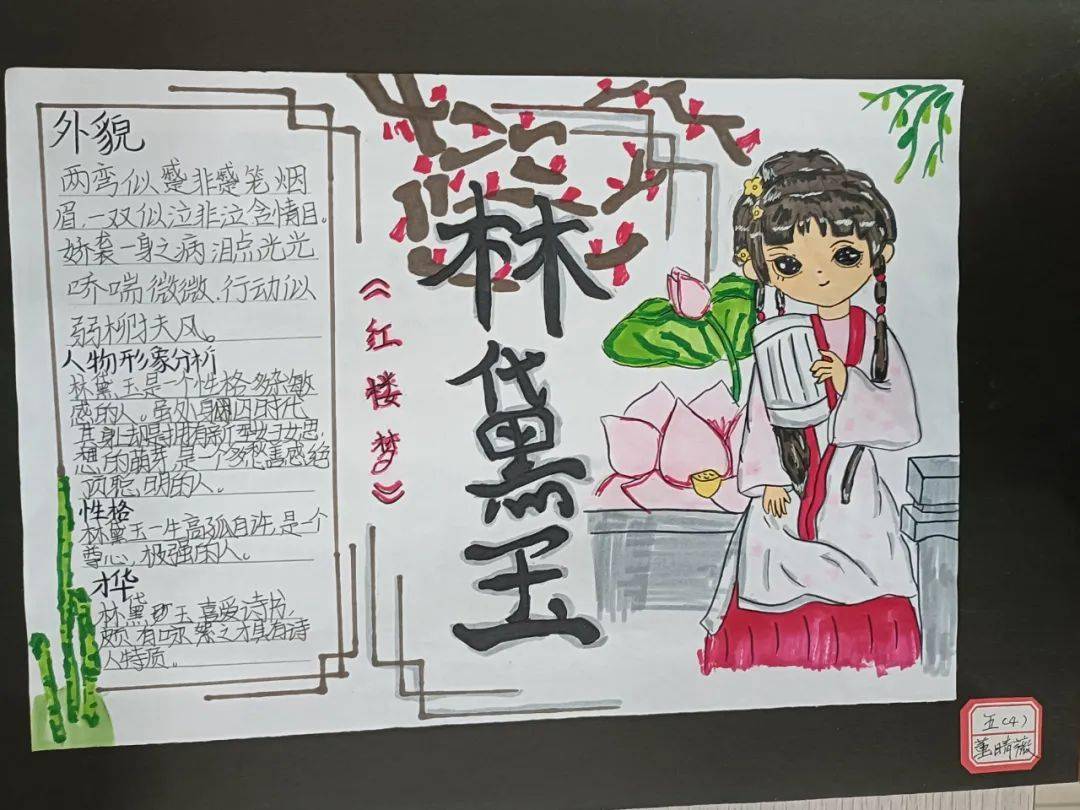 外貌
两弯似蹙非蹙笔烟
眉,一双似泣非泣含情目。
娇袭一身之病,泪点光光
娇喘微微.行动似
弱柳扶风。
人物形象分析
林黛玉是一个性格多愁敏
感的人。虽处身闺囚时代,
其身却是拥有新型妇女思
想的萌芽,是一个多愁善感绝
顶聪明的人。
性格
林黛玉一生高孤自许,是一个
尊心,极强的人。
才华
林黛玉喜爱诗书,
颇有咏絮之才具有诗
人特质。
《红楼梦》
林黛玉
五(4)
董晴薇